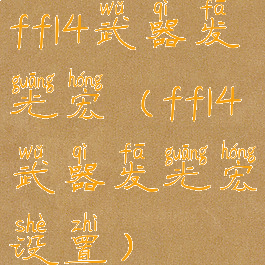 wǔ qì fā
ff14武器发
guāng hóng
光宏(ff14
wǔ qì fā guāng hóng
武器发光宏
shè zhì
设置)